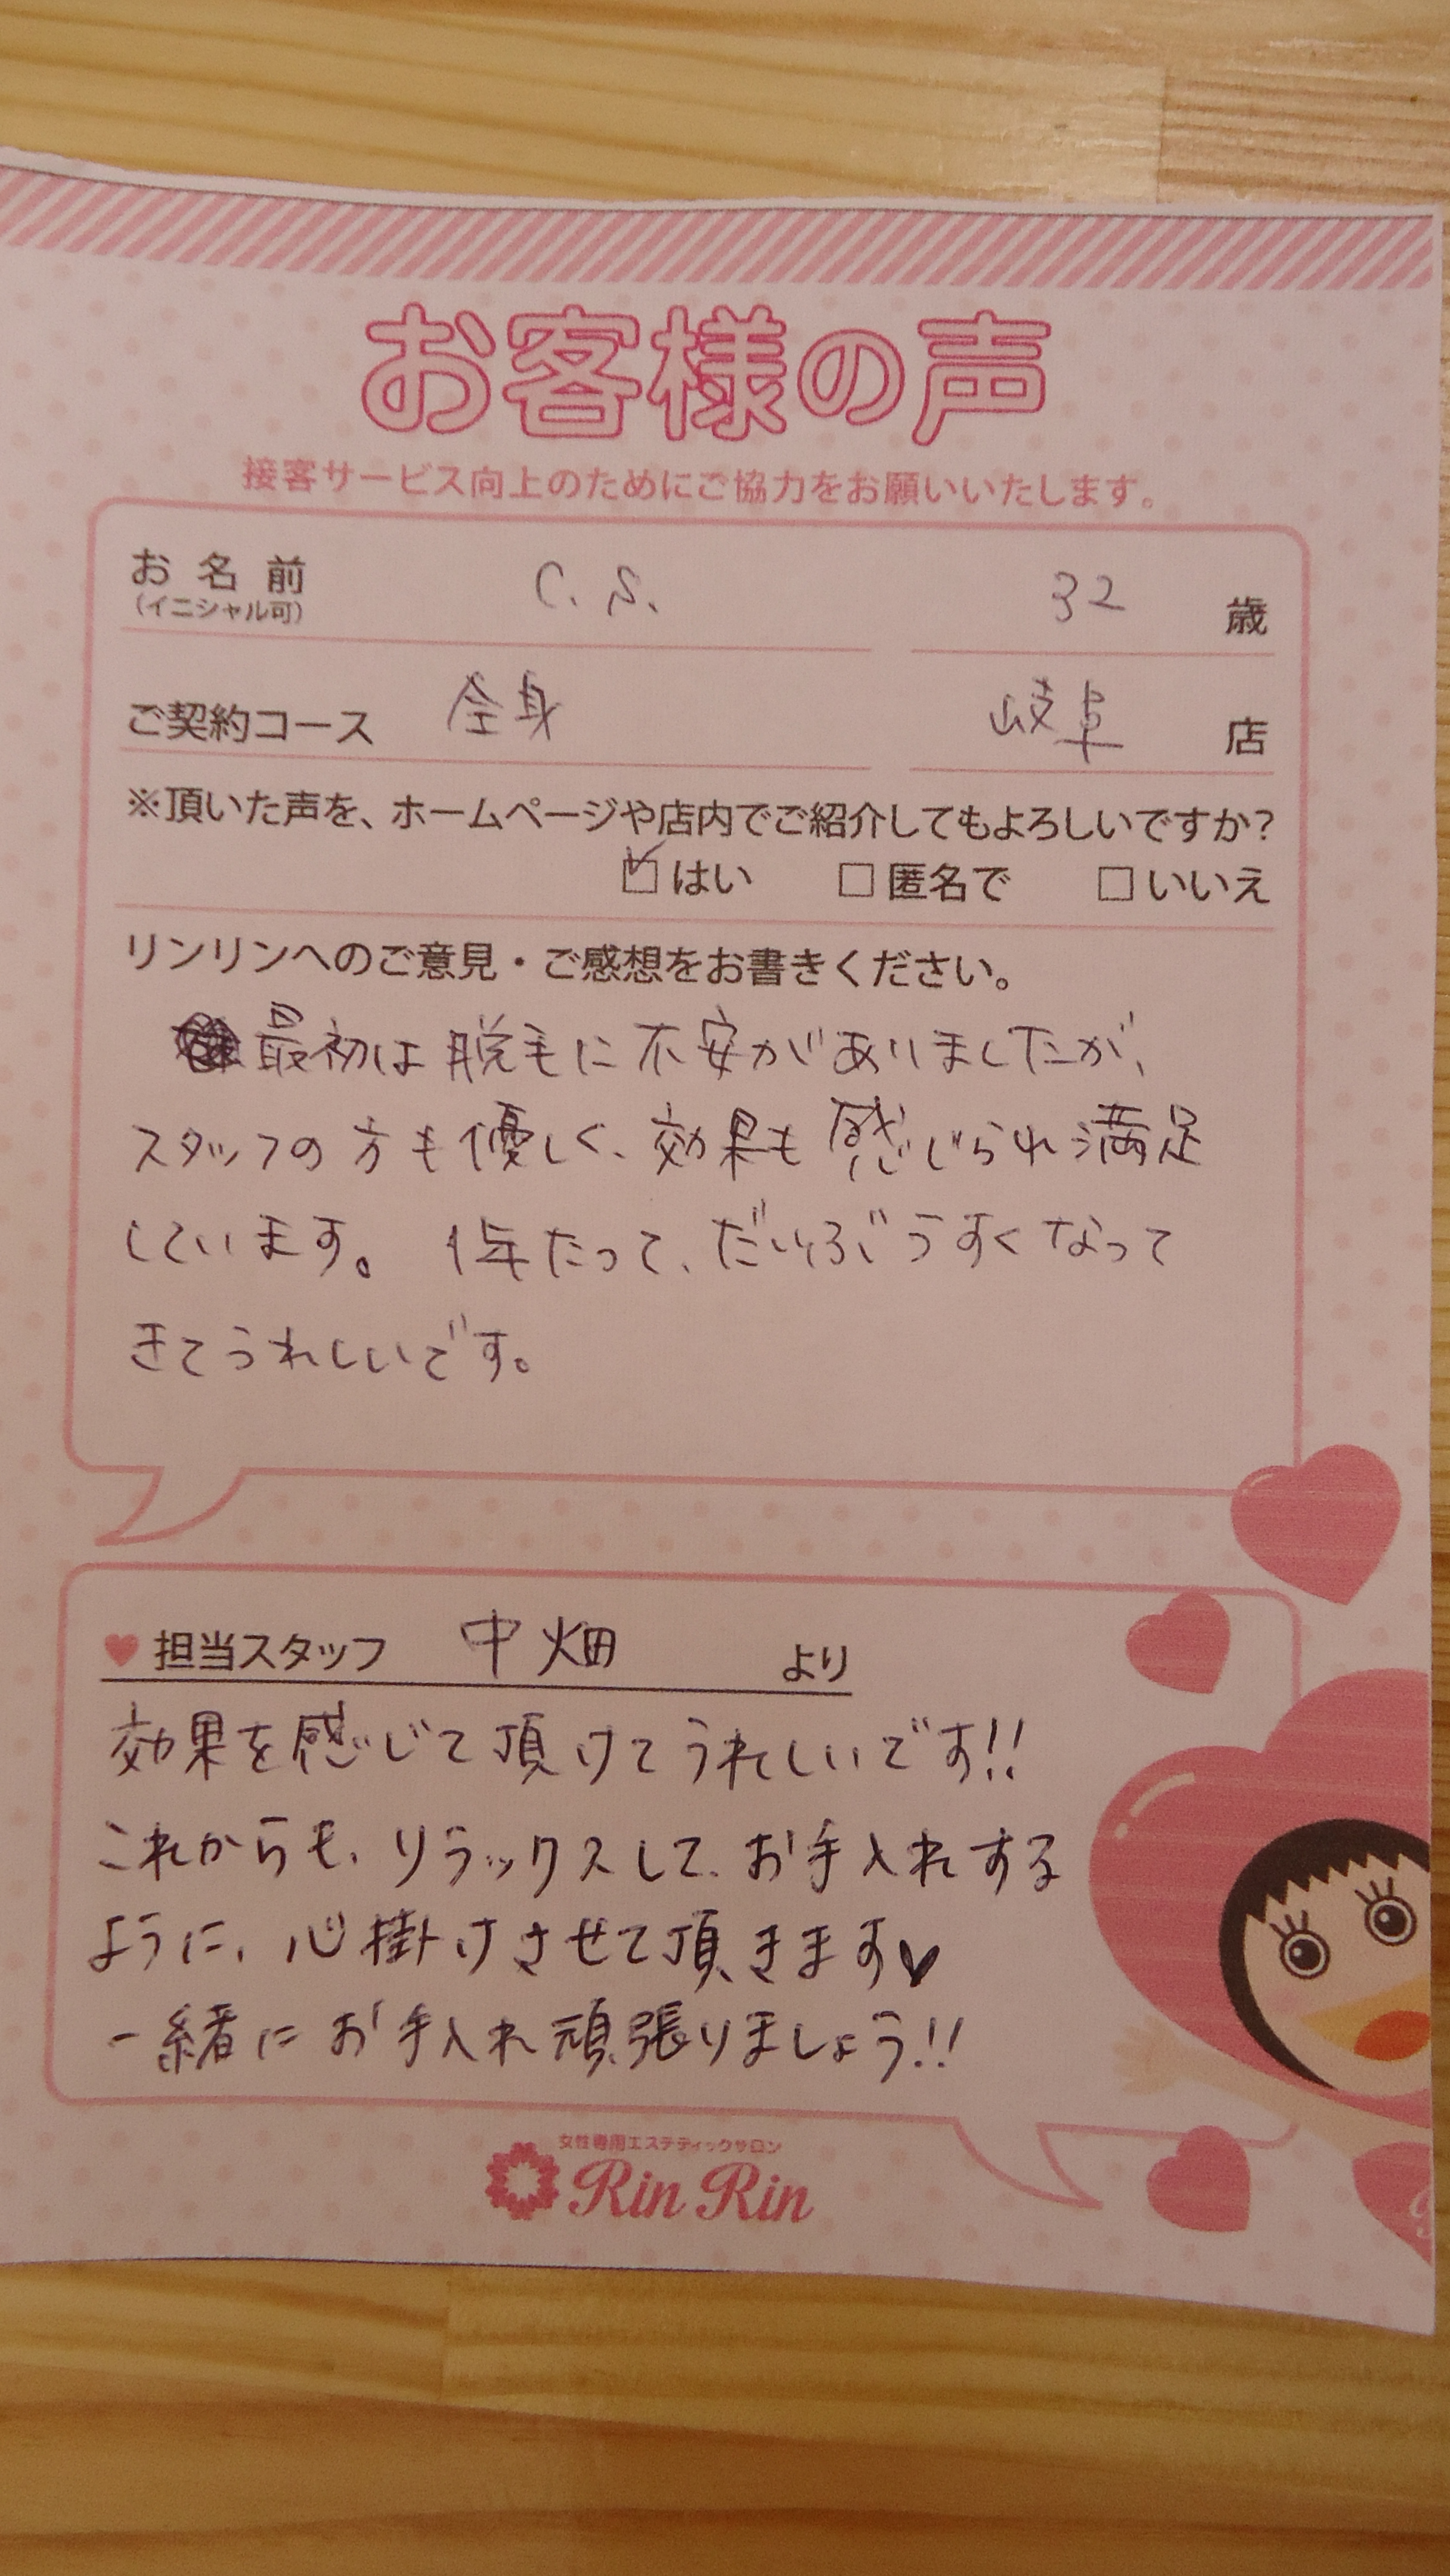 お客様の声
接客サービス向上のためにご協力をお願いいたします。
お名前 C.S. 32 歳
(イニシャル可)
ご契約コース 全身 岐阜 店
※頂いた声を、ホームページや店内でご紹介してもよろしいですか?
☑はい □匿名で □いいえ
リンリンへのご意見・ご感想をお書きください。
最初は脱毛に不安がありましたが、
スタッフの方も優しく、効果も感じられ満足
しています。 1年たって、だいぶうすくなって
きてうれしいです。
♥担当スタッフ 中畑 より
効果を感じて頂けてうれしいです!!
これからも、リラックスして、お手入れする
ように、心掛けさせて頂きます♥
一緒にお手入れ頑張りましょう!!
女性専用エステティックサロン
Rin Rin